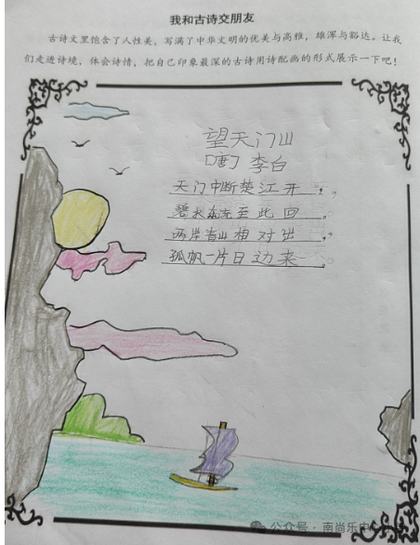 我和古诗交朋友
古诗文里饱含了人性美，写满了中华文明的优美与高雅，雄浑与豁达。让我
们走进诗境，体会诗情，把自己印象最深的古诗用诗配画的形式展示一下吧！
望天门山
[唐] 李白
天门中断楚江开，
碧水东流至此回。
两岸青山相对出，
孤帆一片日边来。
公众号·南尚乐中